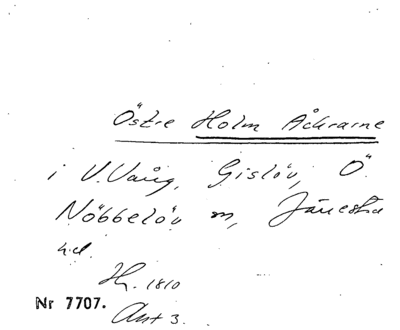 Östre Holm Åkrarne
i V. Vång, Gislöv, Ö.
Nöbbelöv m, Järrestad
hd.
H. 1810
Nr 7707.
Akt 3.